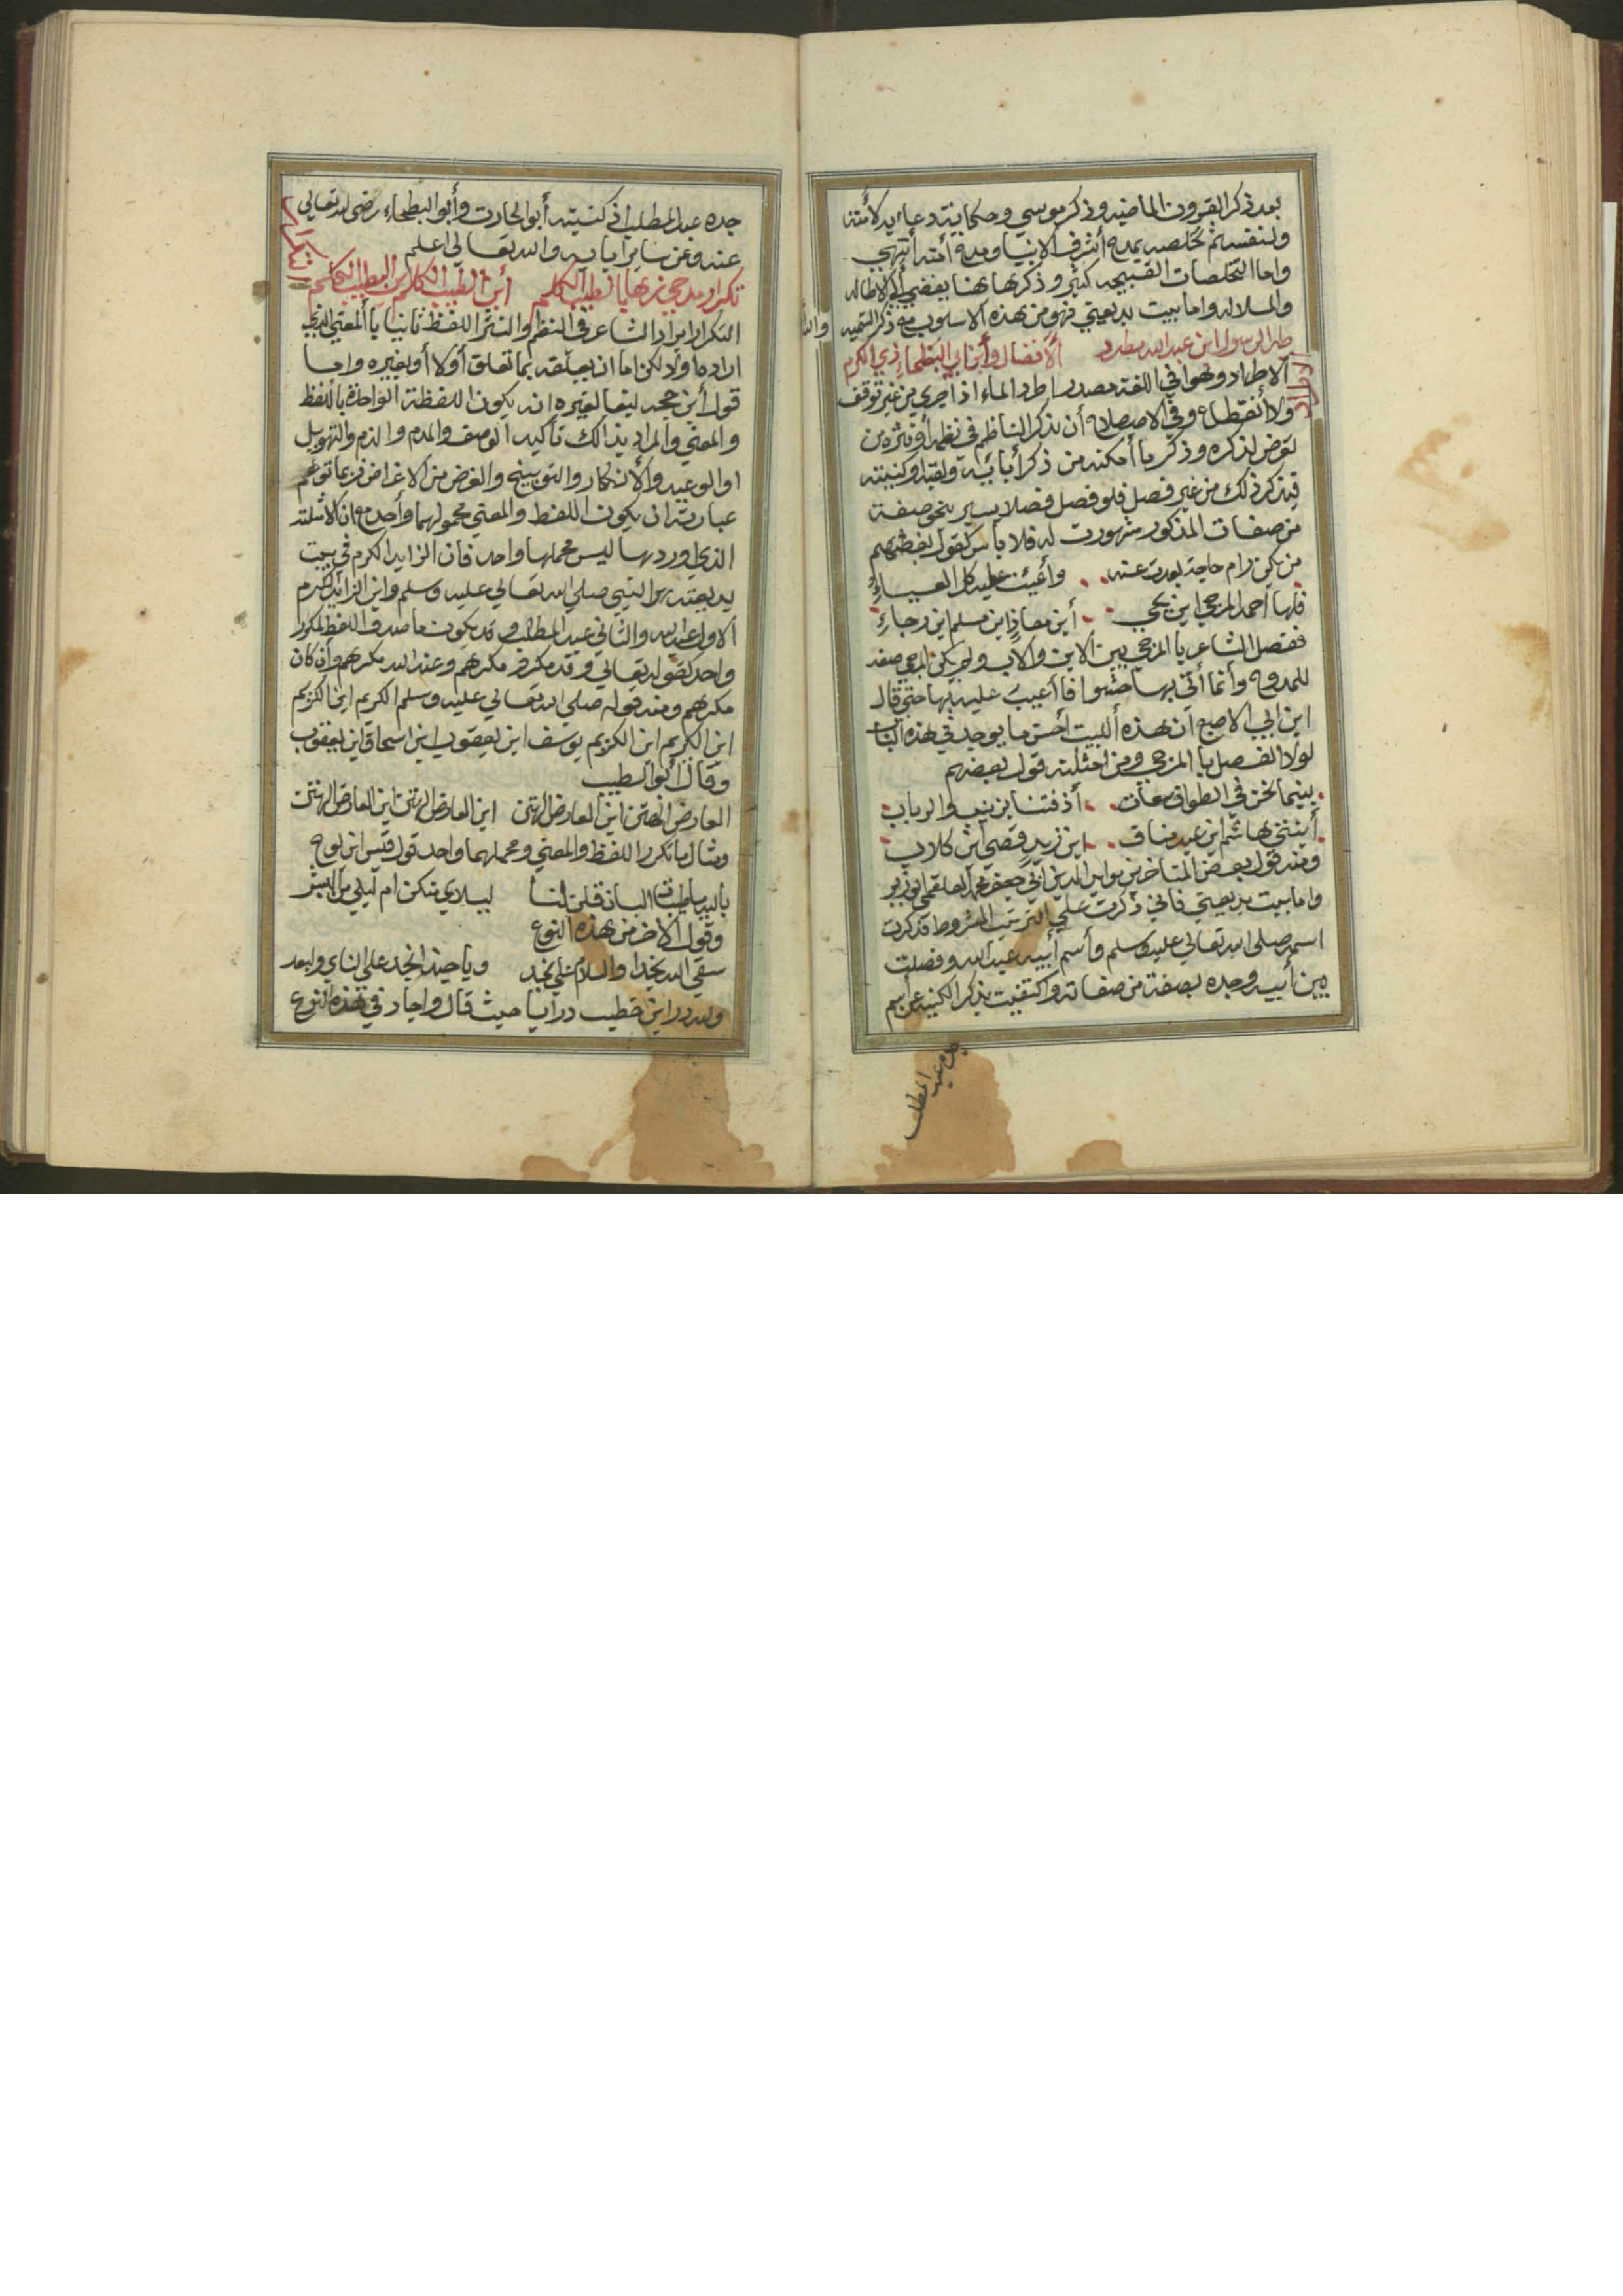 بعد ذكر القرون الماضيه وذكر موسي وحكايته ودعايه لامته
ولنفسه ثم تخلصه بمدح أشرف الانبيا ومدح أمته أنتهي
واما التخلصات القبيحه كثير وذكرها هنا يفضي ألي الاطاله
والملاله واما بيت بديعتي فهو من هذه الاسلوب مع ذكر التسميه
طه الرسول ابن عبد الله مطرد الأفضال وأبن أبي البطحاء ذي الكرم
الاطراد
ألاطراد وهوا في اللغة مصدر اطرد الماء اذا جري من غير توقف
ولا أنقطاع وفي الاصطلاح أن يذكر الناظم في نظمه أو نثره من
تعرض لذكره وذكر ما أمكنه من ذكر أبائه ولقبه وكنيته
فيذكر ذلك من غير فصل فلو فصل فصلا يسير بنحو صفة
من صفات المذكور مشهورت له فلا بأس كقول بعضهم
من يكن رام حاجة بعدت عنه وأعيت عليه كل العياء
فلها أحمد المرجي ابن يحي أبن معاذ ابن مسلم ابن رجاء
ففصل الشاعر بالمرجي بين الابن والاب ولم يكن المرجي صفه
للمدوح وأنما أتي بها حشوا فاأعيب عليه بها حتي قال
ابن ابي الاصبع أن هذه ألبيت أحسن ما يوجد في هذه الباب
لولا الفصل بالمرجي ومن امثلته قول بعضهم
بينما نحن في الطواف سعات أذ فتنا بزينب والرباب
أبنتي هاشم ابن عبد مناف ابن زيد قصي ابن كلاب
ومنه قول بعض المتاخرين مويد الدين أبي جعفر محمد العلقمي الوزير
واما بيت بديعتي فاني ذكرت علي الترتيب المشروط فذكرت
اسمه صلي الله تعالي عليه وسلم وأسم أبيه عبد الله وفصلت
بين أبيه وجده بصفة من صفاته واكتفيت بذكر الكنيه عن اسم
جده عبد المطلب
جده عبد المطلب أذ كنيته أبو الحارت وأبو البطحاء رضي الله تعالي
عنه وعن ساير ابايه والله تعالي اعلم
تكرار مدحي زها بالطيب الكلم أبن الطيب الكلم ابن الطيب الكلم
التكرار
التكرار ايراد الشاعر في النظم والنثر اللفظ ثانيا بالمعني الذي
اراده أولا ولكن اما ان يعلقه بما تعلق أولا أو بغيره واما
قول أبن حجه ليفا لغيره ان يكون اللفظة الواحدة باللفظ
والمعني والمراد بذالك تأكيد الوصف والمدح والذم والتهويل
اوالوعيد والأنكار والتوبيخ والغرض من الاغراض فربما توهم
عبارته ان يكون اللفظ والمعني محمولهما وأحد مع ان الامثلة
الذي اوردها ليس محملها واحد فان الزايد الكرم في بيت
بديعته هو النبي صلي الله تعالي عليه وسلم وابن الزايد الكرم
الاول عبد الله والثاني عبد المطلب وقد يكون ما صدق اللفظ المكرر
واحد كقوله تعالي وقد مكرو مكرهم وعند الله مكرهم وأن كان
مكرهم ومنه قوله صلي الله تعالي عليه وسلم الكريم ابن الكريم
ابن الكريم ابن الكريم يوسف ابن يعقوب ابن اسحاق ابن يعقوب
وقال أبو الطيب
العارض الهتن ابن العارض الهتن ابن العارض الهتن ابن العارض الهتن
ومثال ما تكرر اللفظ والمعني ومحملهما واحد قول قيس ابن لوح
بالله يا ظبيات البان قلن لنا ليلاي منكن ام ليلي من البشر
وقول الاخر من هذه النوع
سقي الله نجدا والسلام علي نجد ويا حبذا نجد علي الناي والبعد
ولله در ابن خطيب داريا حيث قال واجاد في هذه النوع